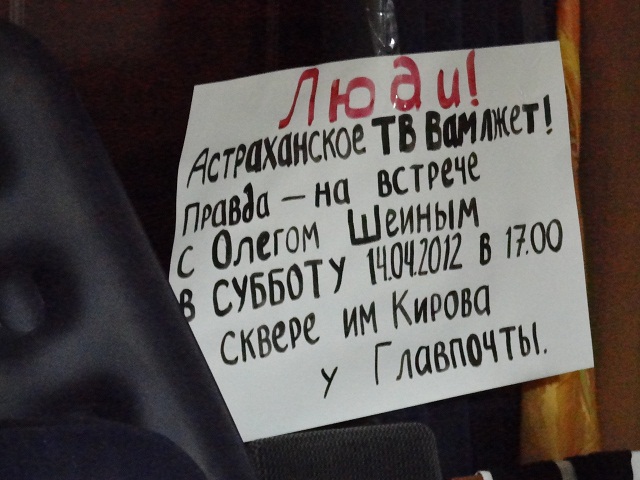 Люди!
Астраханское ТВ Вам лжет!
Правда – на встрече
с Олегом Шеиным
в СУББОТУ 14.04.2012 в 17.00
сквере им Кирова
у Главпочты.